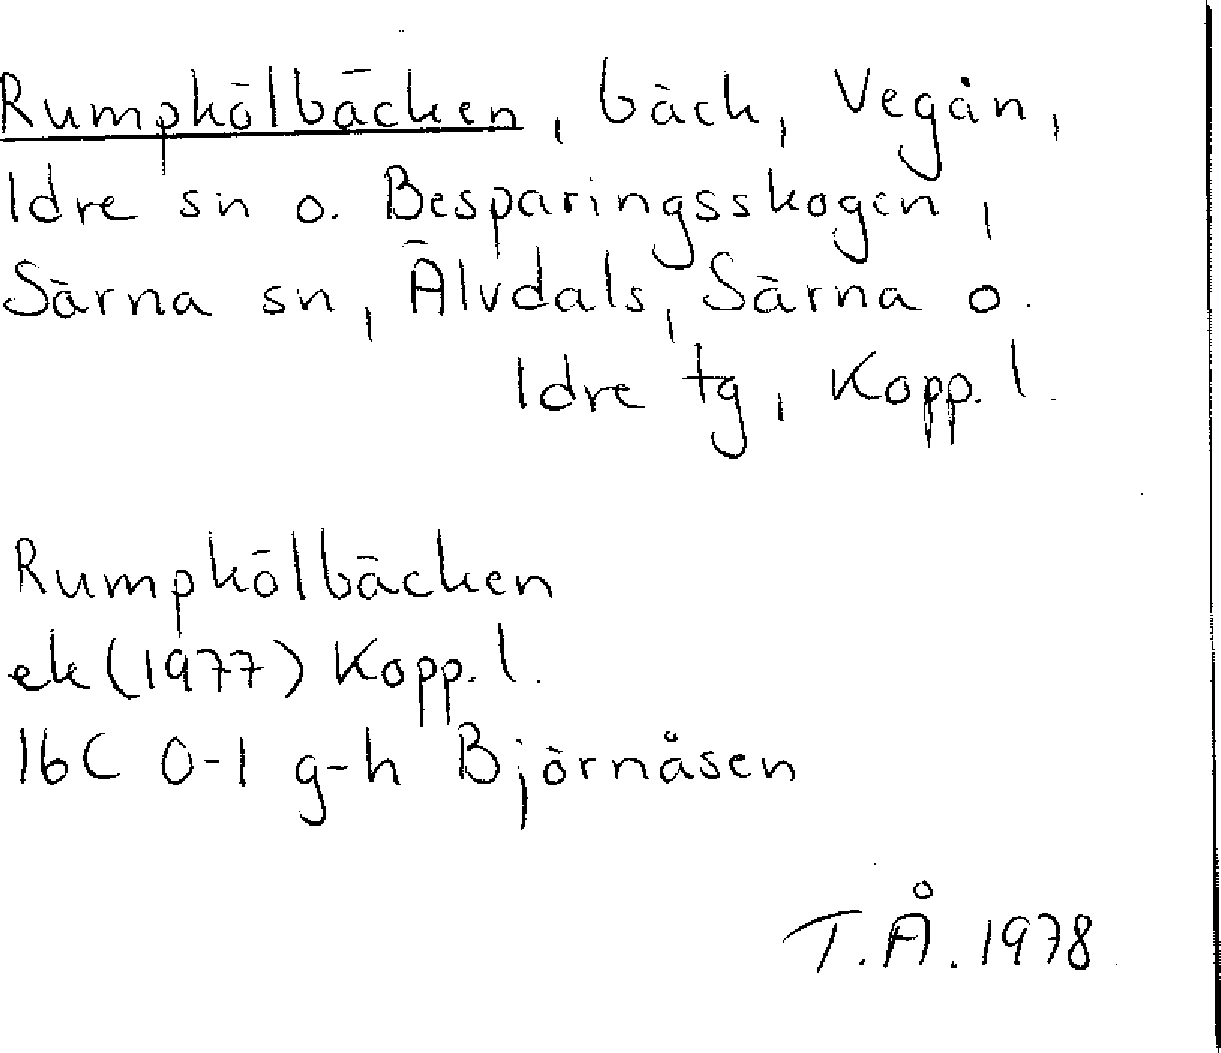 Rumpkölbäcken, bäck, Vegån,
Idre sn o. Besparingsskogen,
Särna sn, Älvdals, Särna o.
Idre tg, Kopp. l.
Rumpkölbäcken
ek (1977) Kopp. l.
16C 0-1 g-h Björnåsen
T.Å. 1978